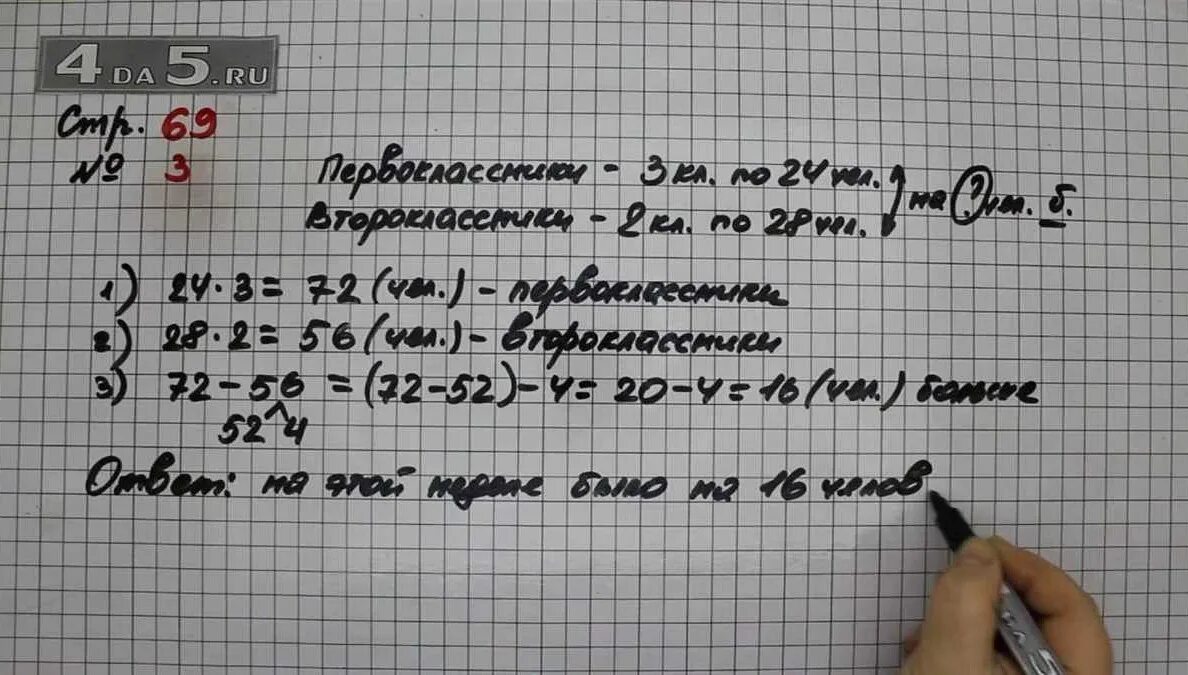 4DA5.RU
Стр. 69
№ 3
Первоклассники - 3 кл. по 24 чел.
Второклассники - 2 кл. по 28 чел.
на ? чел. б.
1) 24·3= 72 (чел.) - первоклассники
2) 28·2= 56 (чел.) - второклассники
3) 72-56 = (72-52)-4= 20-4=16 (чел.) больше
52 4
Ответ: на этой неделе было на 16 челов
DA5